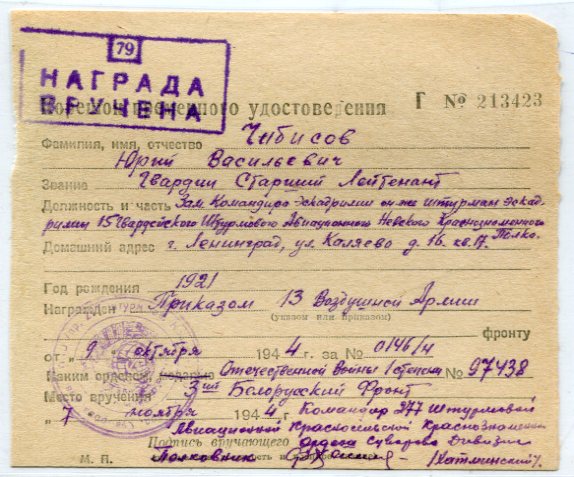 79
НАГРАДА
ВРУЧЕНА
Корешок временного удостоверения Г № 213423
Фамилия, имя, отчество Чибисов
Юрий Васильевич
Звание Гвардии Старший Лейтенант
Должность и часть Зам. Командира эскадрилии он же штурман эскад-
рилии 15 Гвардейского Штурмового Авиационного Невского Краснознаменного Полка.
Домашний адрес г. Ленинград, ул. Каляево д. 16 кв. 17.
Год рождения 1921
Награжден Приказом 13 Воздушной Армии
(указом или приказом)
фронту
от „ 9 „ октября 1944 г. за № 0146/н
Каким орденом, медалью Отечественной Войны 1 степени № 97438
Место вручения 3ий Белорусский Фронт
„ 7 ноября 1944 г. Командир 277 Штурмовой
Авиационной Красносельской Краснознаменной
Подпись вручающего ордена Суворова Дивизии
М. П. Полковник /Хатминский/.